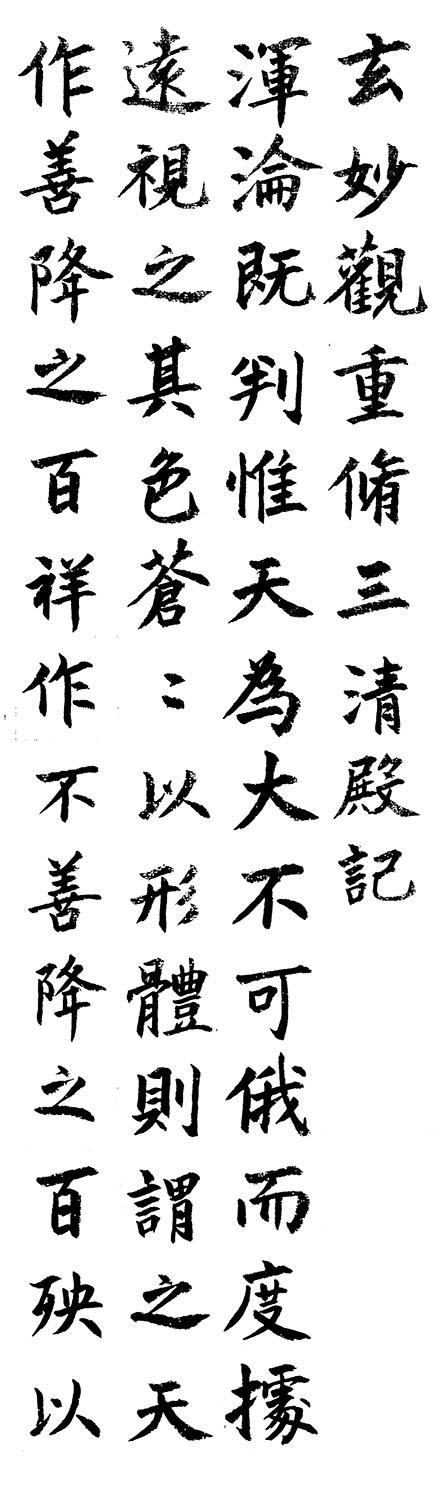 玄妙觀重脩三清殿記
渾淪既判惟天為大不可俄而度據
遠視之其色蒼〻以形體則謂之天
作善降之百祥作不善降之百殃以